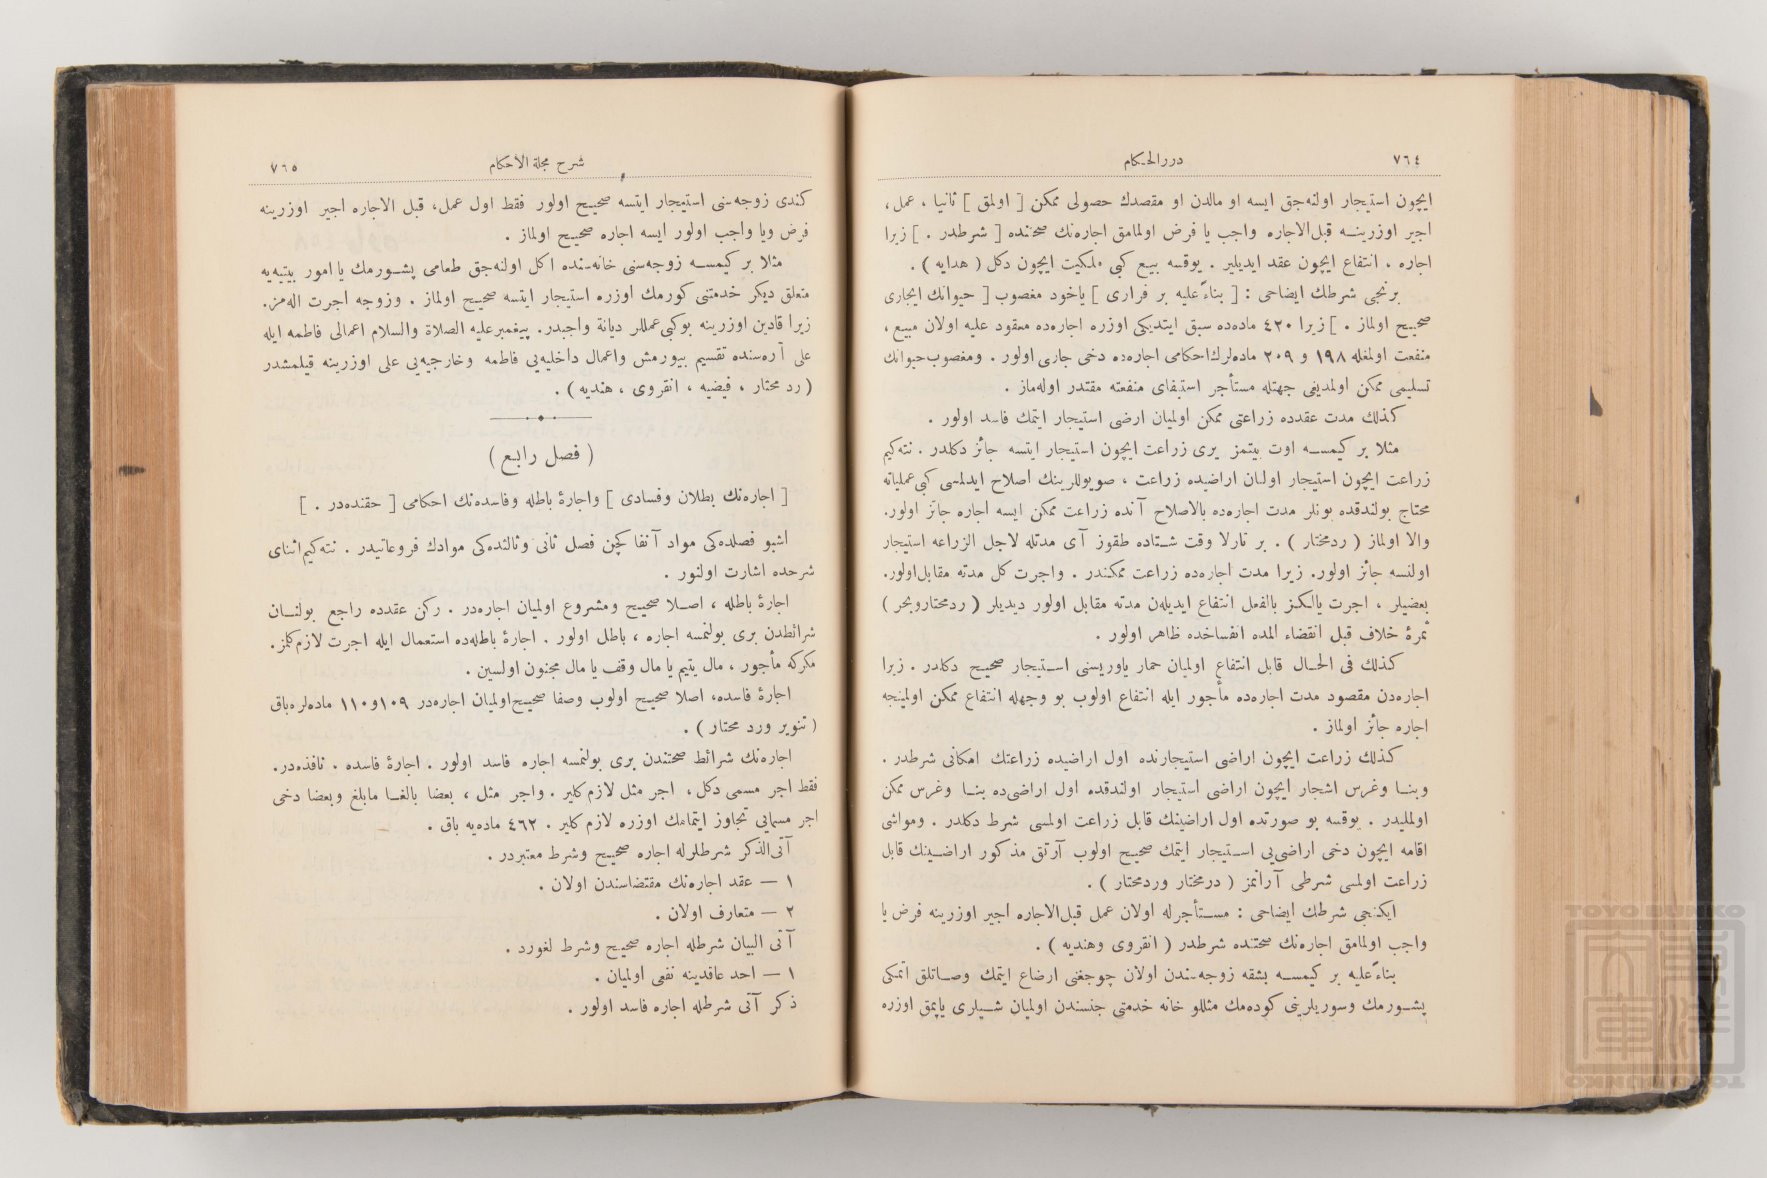 ٧٦٤
دررالحكام
ايچون استيجار اولنه‌جق ايسه او مالدن او مقصدك حصولى ممكن [ اولمق ] ثانيا ، عمل ،
اجير اوزرينــه قبل‌الاجاره واجب يا فرض اولمامق اجاره‌نك صحتنده [ شرطدر . ] زيرا
اجاره ، انتفاع ايچون عقد ايديلير . يوقسه بيع كبى ملكيت ايچون دكل ( هدايه ) .
برنجى شرطك ايضاحى : [ بناءً عليه بر فرارى ] ياخود مغصوب [ حيوانك ايجارى
صحيح اولماز . ] زيرا ٤٢٠ ماده‌ده سبق ايتديكى اوزره اجاره‌ده معقود عليه اولان مبيع ،
منفعت اولمغله ١٩٨ و ٢٠٩ ماده‌لرك احكامى اجاره‌ده دخى جارى اولور . ومغصوب حيوانك
تسليمى ممكن اولمديغى جهتله مستأجر استيفاى منفعته مقتدر اوله‌ماز .
كذلك مدت عقدده زراعتى ممكن اولميان ارضى استيجار ايتمك فاسد اولور .
مثلا بر كيمســه اوت بيتمز يرى زراعت ايچون استيجار ايتسه جائز دكلدر . نته‌كيم
زراعت ايچون استيجار اولنان اراضيده زراعت ، صويوللرينك اصلاح ايدلمسى كبى عملياته
محتاج بولندقده بونلر مدت اجاره‌ده بالاصلاح آنده زراعت ممكن ايسه اجاره جائز اولور.
والا اولماز ( ردمختار ) . بر تارلا وقت شــتاده طقوز آى مدتله لاجل الزراعه استيجار
اولنسه جائز اولور. زيرا مدت اجاره‌ده زراعت ممكندر . واجرت كل مدته مقابل‌اولور.
بعضيلر ، اجرت يالكز بالفعل انتفاع ايديلن مدته مقابل اولور ديديلر ( ردمختاروبحر )
ثمرهٔ خلاف قبل انقضاء المده انفساخده ظاهر اولور .
كذلك فى الحــال قابل انتفاع اولميان حمار ياوريسنى اســتيجار صحيح دكلدر . زيرا
اجاره‌دن مقصود مدت اجاره‌ده مأجور ايله انتفاع اولوب بو وجهله انتفاع ممكن اولمينجه
اجاره جائز اولماز .
كذلك زراعت ايچون اراضى استيجارنده اول اراضيده زراعتك امكانى شرطدر .
وبنــا وغرس اشجار ايچون اراضى استيجار اولندقده اول اراضى‌ده بنــا وغرس ممكن
اولمليدر . يوقسه بو صورتده اول اراضينك قابل زراعت اولمسى شرط دكلدر . ومواشى
اقامه ايچون دخى اراضى‌يى اســتيجار ايتمك صحيح اولوب آرتق مذكور اراضــينك قابل
زراعت اولمسى شرطى آرانمز ( درمختار وردمختار ) .
ايكنجى شرطك ايضاحى : مســتأجرله اولان عمل قبل‌الاجاره اجير اوزرينه فرض يا
واجب اولمامق اجاره‌نك صحتنده شرطدر ( انقروى وهنديه ) .
بناءً عليه بر كيمســه بشقه زوجه‌سندن اولان چوجغنى ارضاع ايتمك وصــاتلق اتمكى
پشــورمك وسوريلرينى كوده‌مك مثللو خانه خدمتى جنسندن اولميان شــيلرى ياپمق اوزره
شرح مجلة الاحكام
٧٦٥
كندى زوجه‌سنى استيجار ايتسه صحيح اولور فقط اول عمل، قبل الاجاره اجير اوزرينه
فرض ويا واجب اولور ايسه اجاره صحيح اولماز .
مثلا بر كيمســه زوجه‌سنى خانه‌سنده اكل اولنه‌جق طعامى پشــورمك يا امور بيتيه‌يه
متعلق ديكر خدمتنى كورمك اوزره استيجار ايتسه صحيح اولماز . وزوجه اجرت اله‌مز.
زيرا قادين اوزرينه بوكبى‌عمللر ديانة واجبدر. پيغمبرعليه الصلاة والسلام اعمالى فاطمه ايله
على آره‌سنده تقسيم بيورمش واعمال داخليه‌يى فاطمه وخارجيه‌يى على اوزرينه قيلمشدر
( رد محتار ، فيضيه ، انقروى ، هنديه ) .
( فصل رابع )
[ اجاره‌نك بطلان وفسادى ] واجارهٔ باطله وفاسده‌نك احكامى [ حقنده‌در . ]
اشبو فصلده‌كى مواد آنفا كچن فصل ثانى وثالثده‌كى موادك فروعاتيدر . نته‌كيم اثناى
شرحده اشارت اولنور .
اجارهٔ باطله ، اصــلا صحيح ومشروع اولميان اجاره‌در . ركن عقدده راجع بولنــان
شرائطدن برى بولنمسه اجاره ، باطل اولور . اجارهٔ باطله‌ده استعمال ايله اجرت لازم كلمز.
مكركه مأجور ، مال يتيم يا مال وقف يا مال مجنون اولسين .
اجارهٔ فاسده، اصلا صحيح اولوب وصفا صحيح‌اولميان اجاره‌در ١٠٩و١١٠ ماده‌لره‌باق
( تنوير ورد محتار ) .
اجاره‌نك شرائط صحتندن برى بولنمسه اجاره فاسد اولور . اجارهٔ فاسده . نافذه‌در.
فقط اجر مسمى دكل ، اجر مثل لازم كلير . واجر مثل ، بعضا بالغــا مابلغ وبعضا دخى
اجر مسمايى تجاوز ايتمامك اوزره لازم كلير . ٤٦٢ ماده‌يه باق .
آتى‌الذكر شرطلرله اجاره صحيح وشرط معتبردر .
١ — عقد اجاره‌نك مقتضاسندن اولان .
٢ — متعارف اولان .
آتى البيان شرطله اجاره صحيح وشرط لغودر .
١ — احد عاقدينه نفعى اولميان .
ذكر آتى شرطله اجاره فاسد اولور .
TOYO BUNKO
TOYO BUNKO